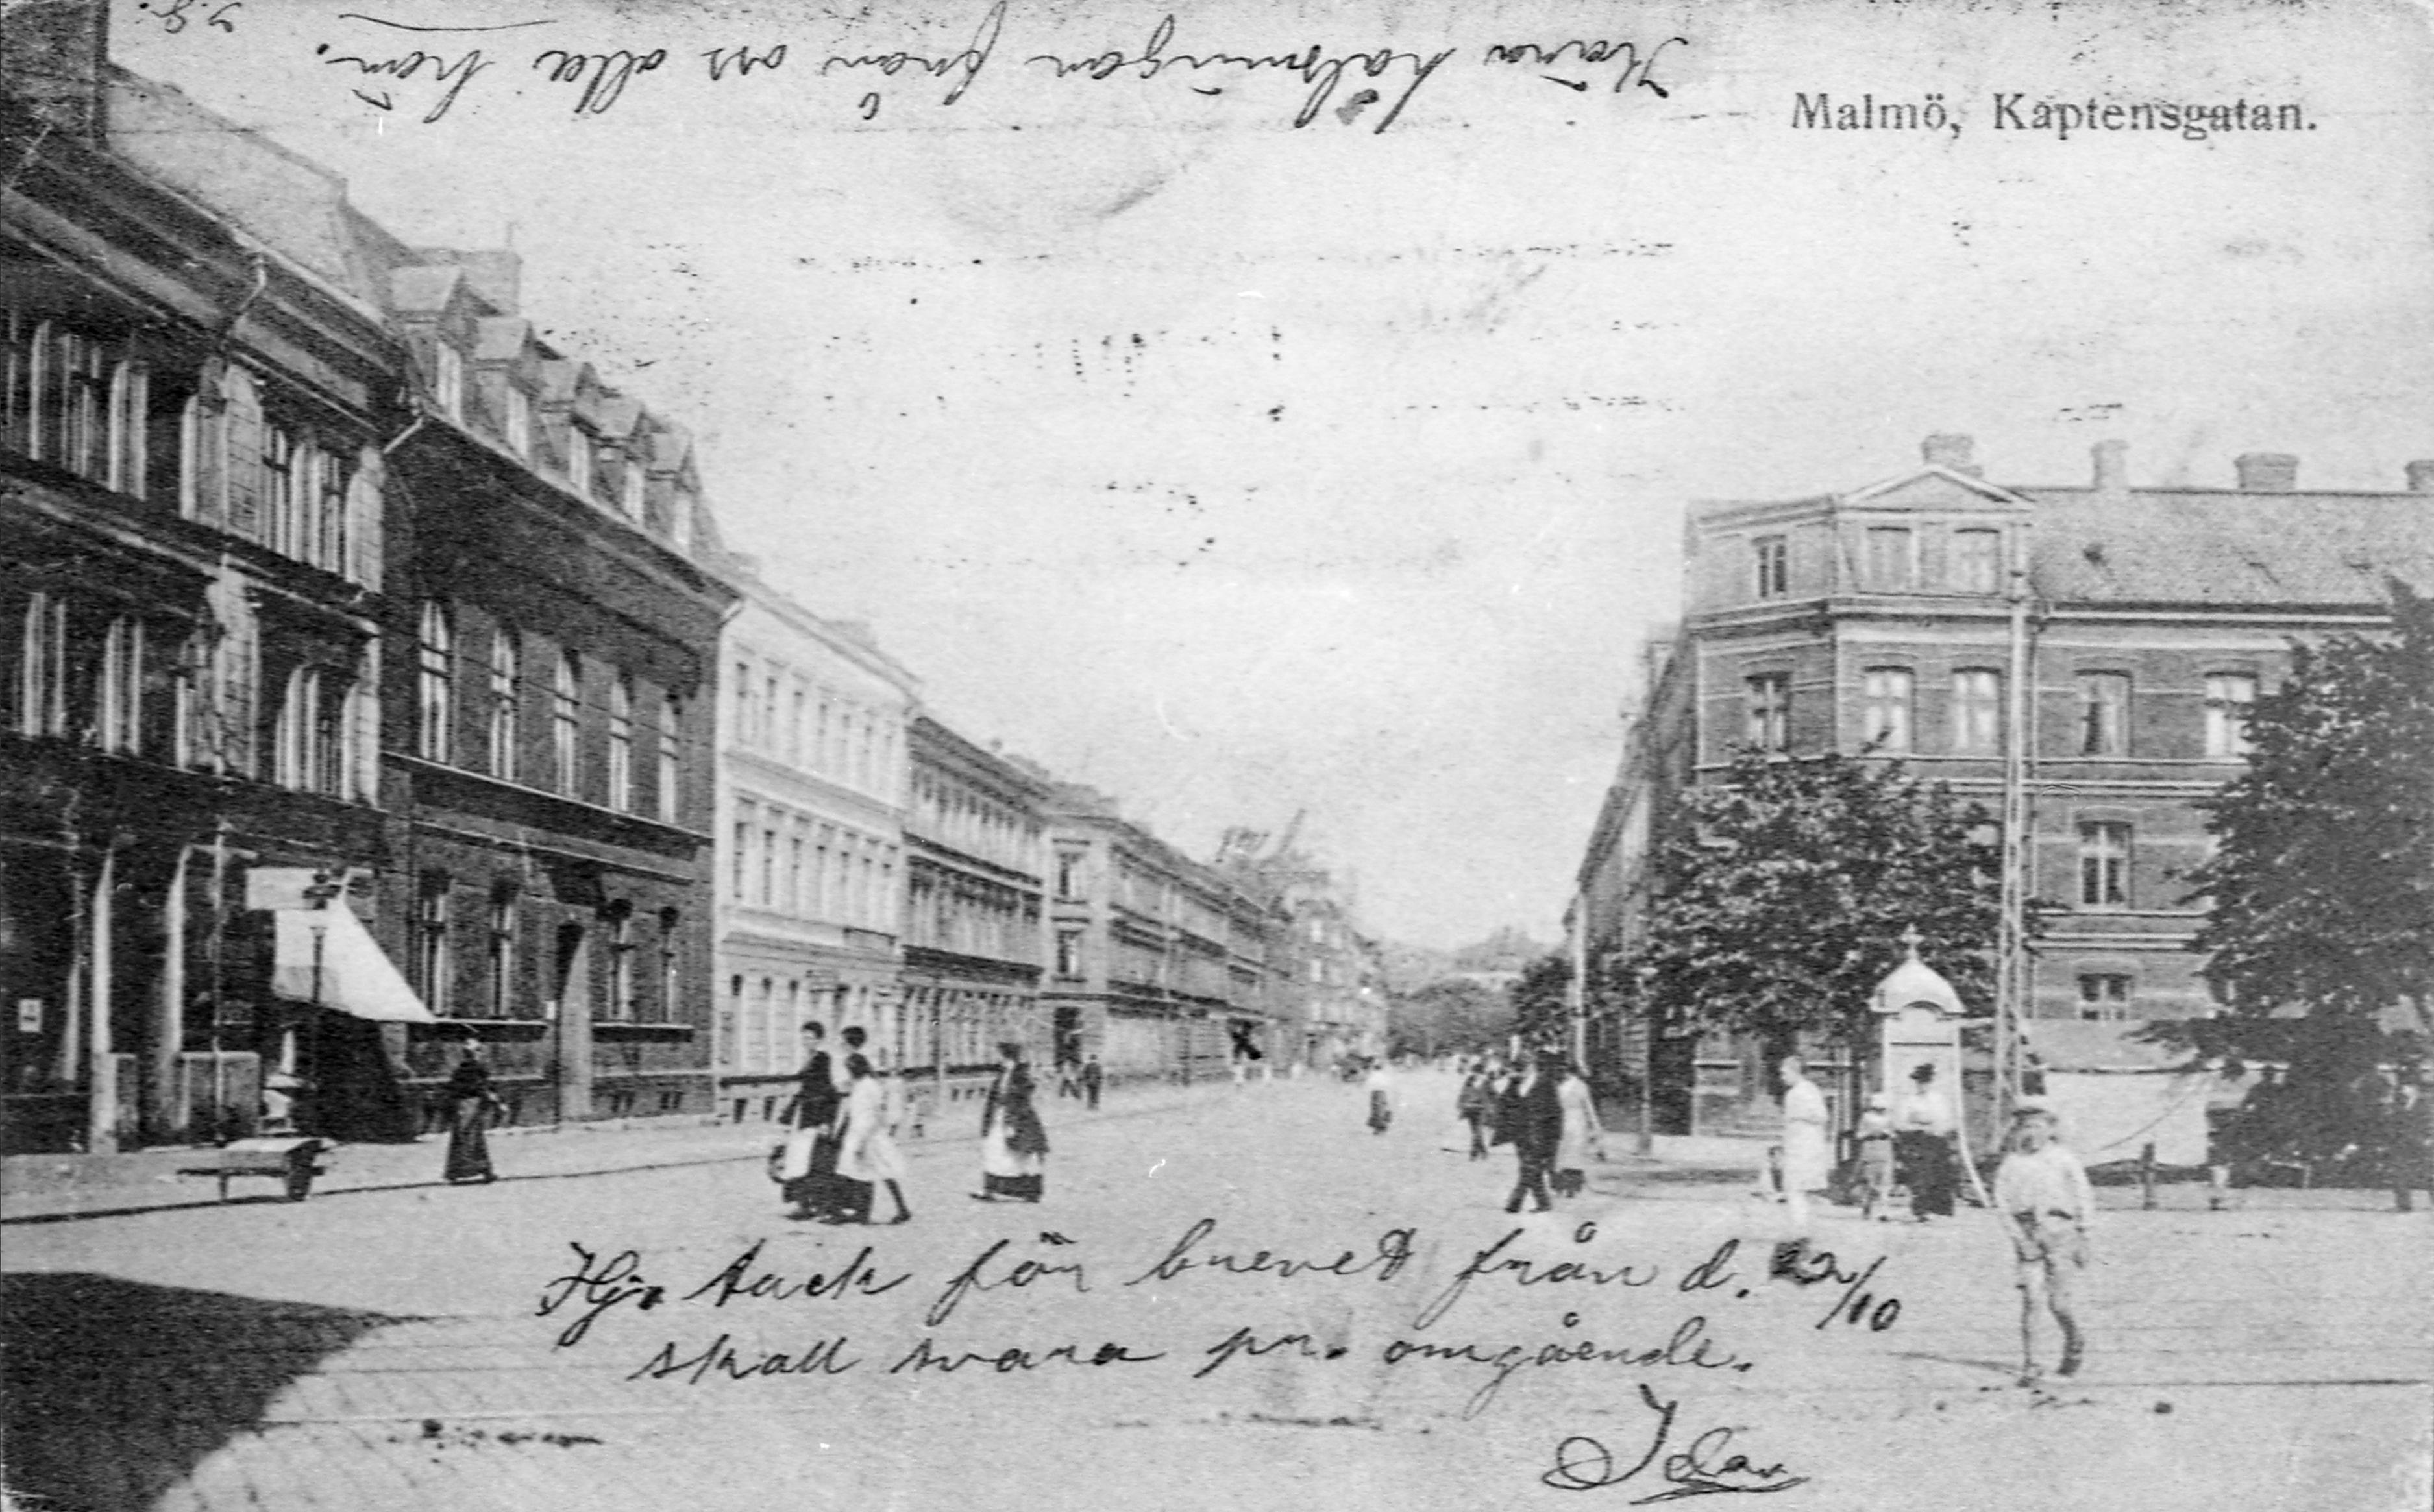 Kära hälsningar från oss alla här.
Malmö, Kaptensgatan.
Hj. tack för brevet från d. 22/10
skall svara pr. omgående.
Ida